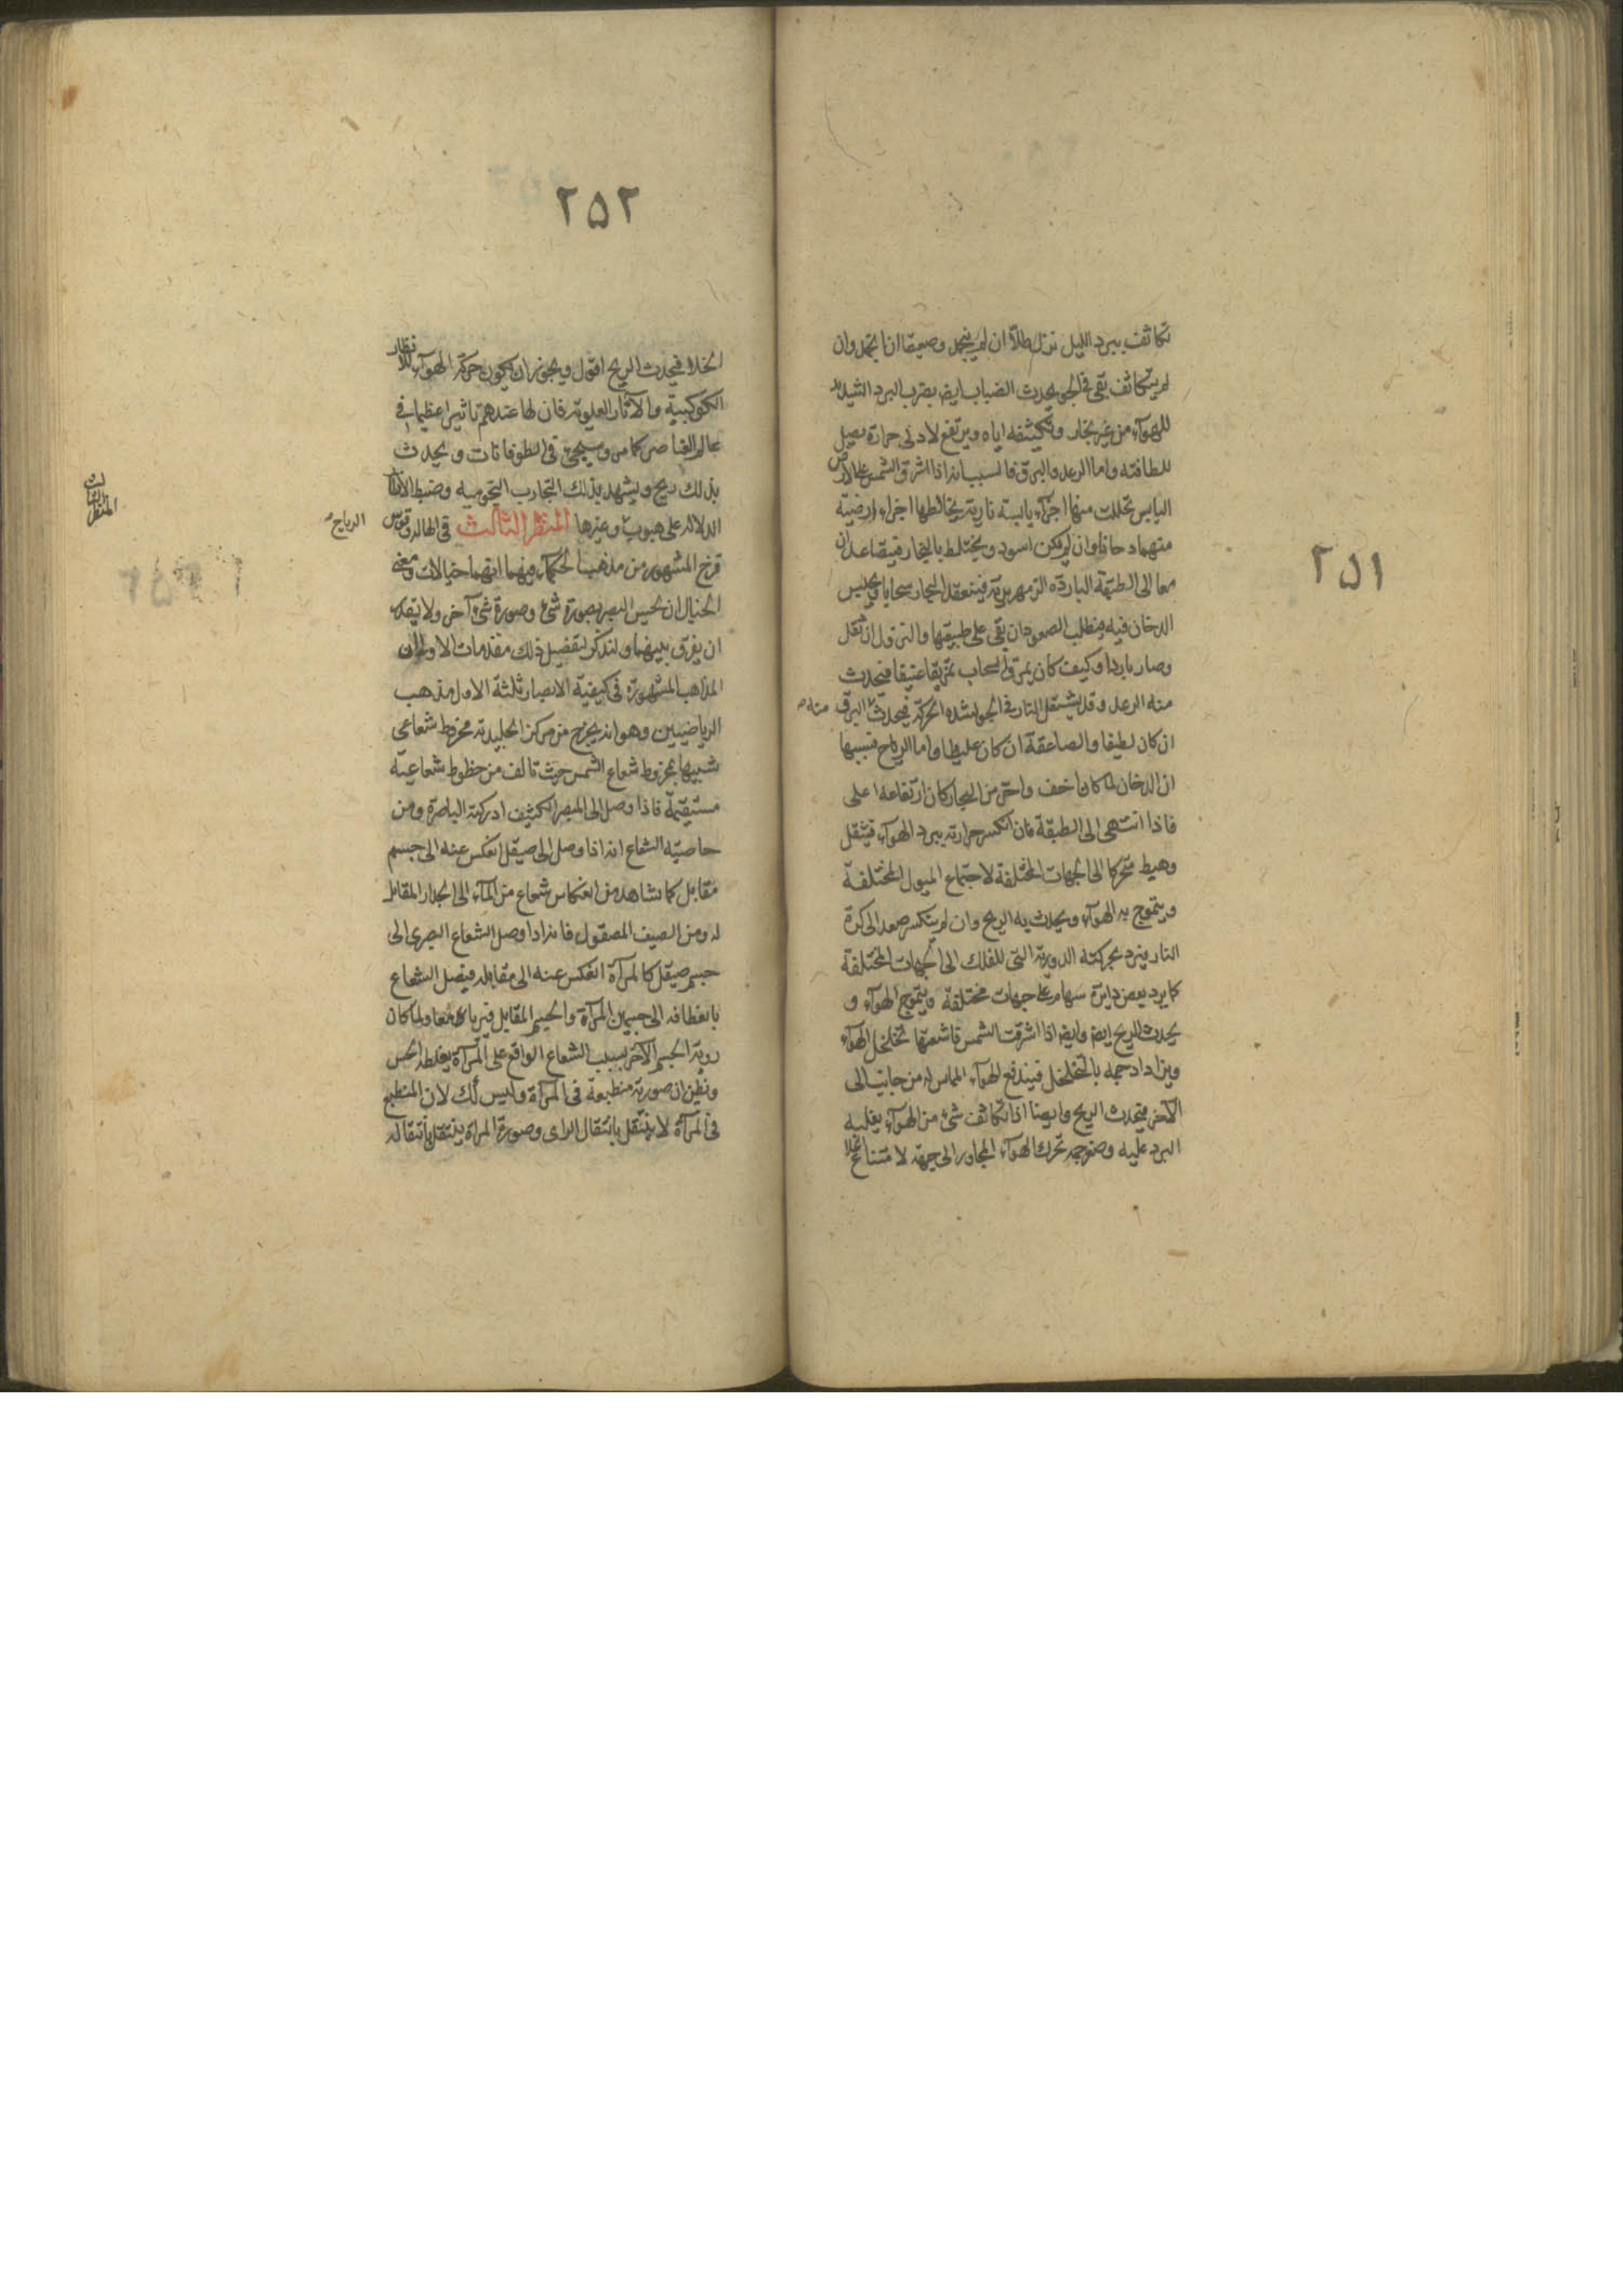 ٢٥١
تكاثف ببرد الليل نزل طلّا ان لم ينجمد وصقيعا ان انجمد وان
لم يتكاثف بقى فى الجو يحدث الضباب ايضا بضرب البرد الشديد
للهوآء من غير بخار وتكثيفه اياه ويرتفع لادنى حرارة يصل
للطافته واما الرعد والبرق فالسبب انه اذا اشرق الشمس على الارض
اليابس تحللت منها اجزآء يابسة نارية يخالطها اجزاء ارضية
متهما دخانا وان لم يكن اسود ويختلط بالبخار فيتصاعدان
معا الى الطبقة الباردة الزمهريرية فينعقد البخار سحابا ويحبس
الدخان فيه فيطلب الصعود ان بقى على طبيعتها والنزول ان ثقل
وصار باردا وكيف كان يمزق السحاب تمزيقا عنيفا فيحدث
منه الرعد وقد يشتعل النار فى الجو لشدة الحركة فيحدث البرق منه
ان كان لطيفا والصاعقة ان كان غليظا واما الرياح فسببها
ان الدخان لما كان اخف واحر من البخار كان ارتفاعه اعلى
فاذا انتهى الى الطبقة فان انكسر حرارته ببرد الهوآء فيثقل
وهبط متحركا الى الجهات المختلفة لاجتماع الميول المختلفة
ويتموج به الهوآء ويحدث به الريح وان لم ينكسر صعد الى كرة
النار فيرد بحركته الدورية التى للفلك الى الجهات المختلفة
كما يرد بعض دايرة سهام على جهات مختلفة ويتموج الهوآء و
يحدث الريح ايضا وايضا اذا اشرقت الشمس فاشعتها تخلخل الهوآء
ويزاداد حجمه بالتخلخل فيندفع الهوآء المماس له من جانب الى
الآخر فيحدث الريح وايضا اذا تكاثف شئ من الهوآء بغلبة
البرد عليه وصغر حجمه تحرك الهوآء المجاور الى جهته لامتناع الخلا
٢٥٢
الخلاء فيحدث الريح اقول ويجوز ان يكون حركة الهوآء للانظار
الكوكبية والآثار العلوية فان لها عندهم تاثيرا عظيما فى
عالم العناصر كما مر وسيجئ فى الطوفانات ويحدث
بذلك ريح ويشهد بذلك التجارب النجومية وضبط الانظار
الدلالة على هبوب وغيرها المنظر الثالث فى الهالة وقوس
الرياح
قزح المشهور من مذهب الحكمآء فيهما انهما خيالات ومعنى
الخيال ان يحس البصر بصورة شئ وصورة شئ آخر ولا يتمكن
ان يفرق بينهما ولنذكر لتفصيل ذلك مقدمات الاولى ان
المذاهب المشهورة فى كيفية الابصار ثلثة الاول مذهب
الرياضيين وهو انه يخرج من مركز الجليدية مخروط شعاعى
شبيها بمخروط شعاع الشمس حيث تالف من خطوط شعاعية
مستقيمة فاذا وصل الى المبصر الكثيف ادركته الباصرة ومن
خاصية الشعاع انه اذا وصل الى صيقل انعكس عنه الى جسم
مقابل كما نشاهد من انعكاس شعاع من المآء الى الجدار المقابل
له ومن السيف المصقول فانه اذا وصل الشعاع البصرى الى
جسم صيقل كالمرآة انعكس عنه الى مقابله فيصل الشعاع
بانعطافه الى جسمين المرآة والجسم المقابل فيريان معا ولما كان
روية الجسم الآخر بسبب الشعاع الواقع على المرآة يغلط الحس
ونظن ان صورته منطبعة فى المرآة وليس كك لان المنطبع
فى المرآة لا ينتقل بانتقال الراى وصورة المراة ينتقل بانتقاله